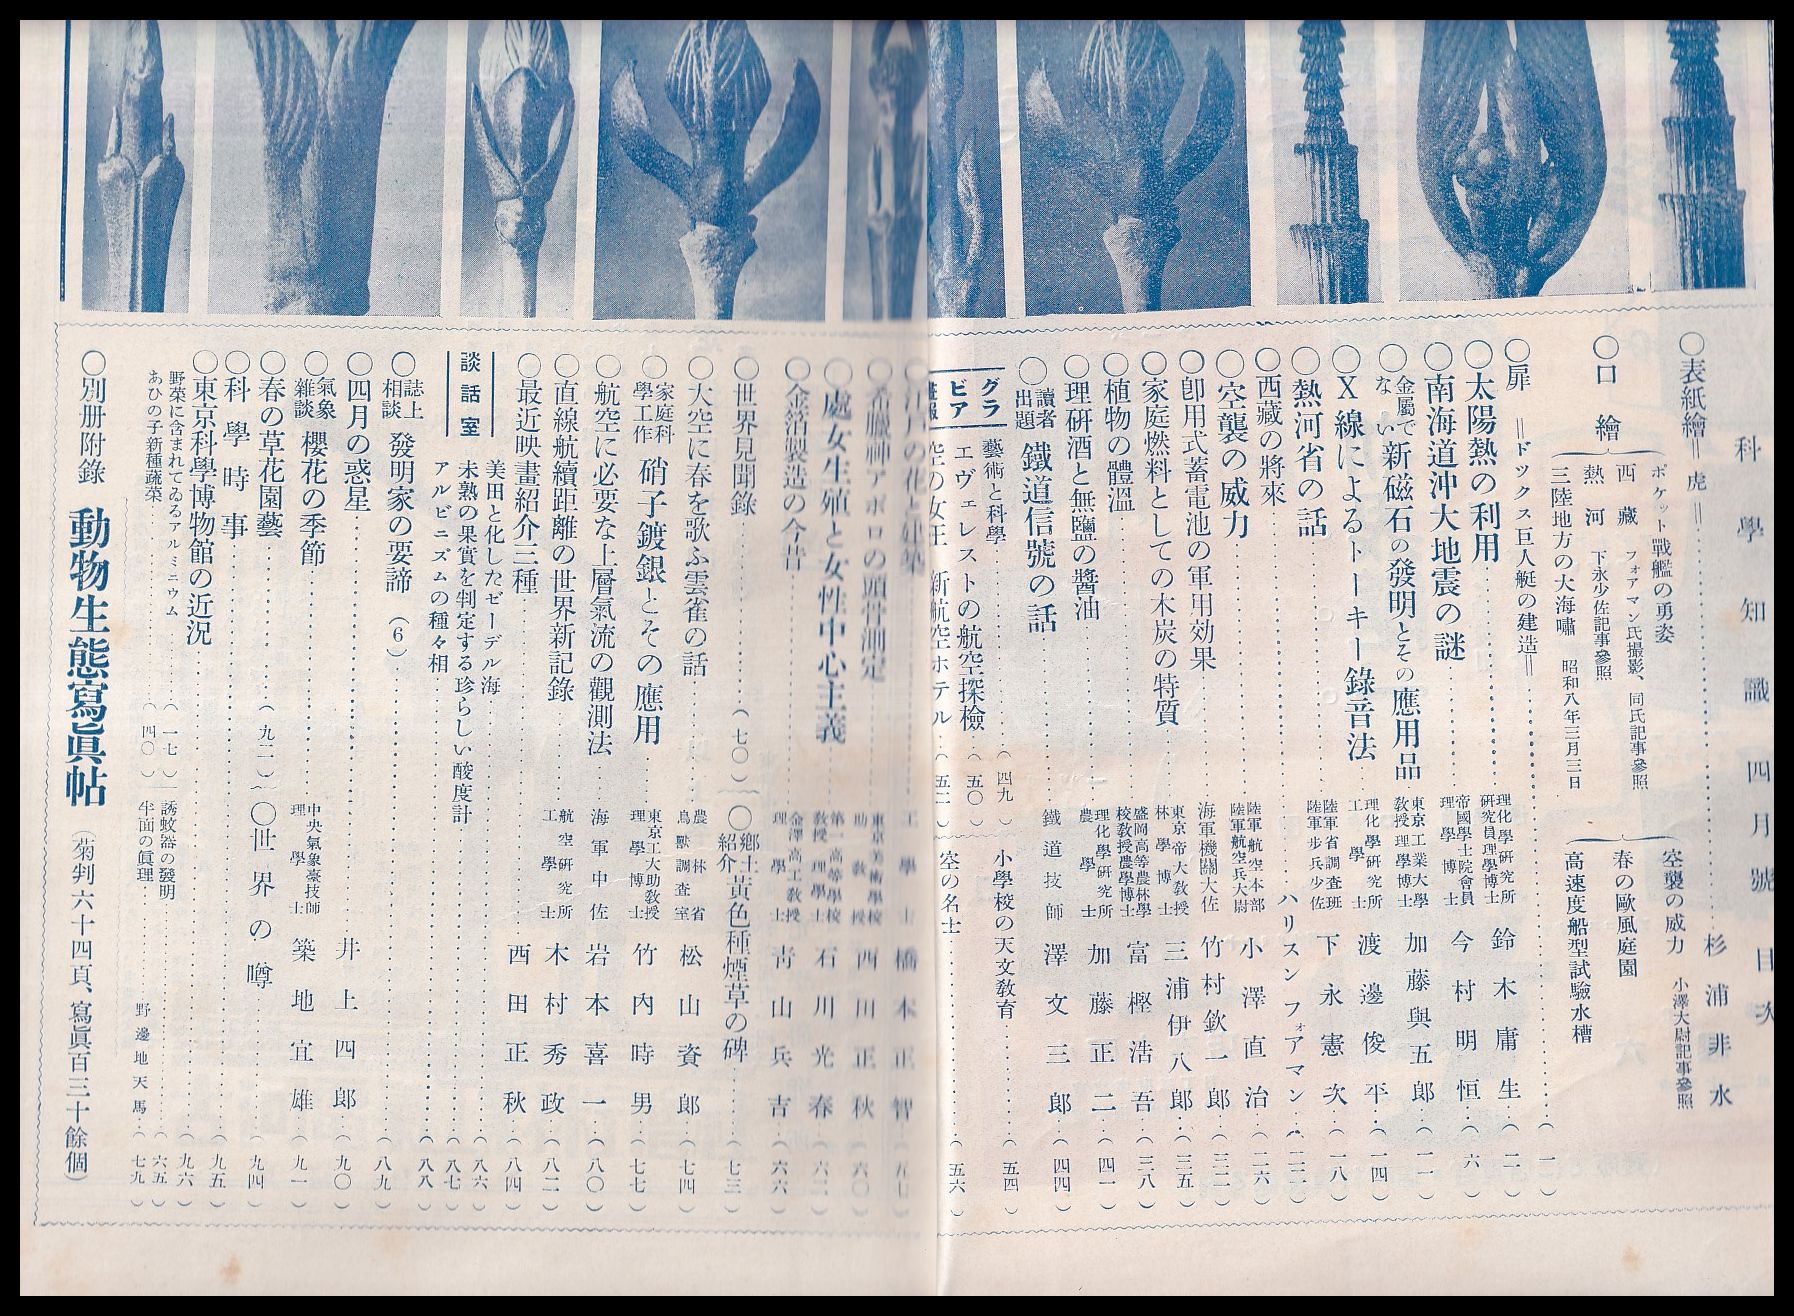 科學知識四月號目次
○表紙繪＝虎＝……杉浦非水
○口繪
ポケット戰艦の勇姿
西藏 フォアマン氏撮影、同氏記事參照
熱河 下永少佐記事參照
三陸地方の大海嘯 昭和八年三月三日
空襲の威力 小澤大尉記事參照
春の歐風庭園
高速度船型試驗水槽
○扉 ＝ドックス巨人艇の建造＝……（一）
○太陽熱の利用……理化學研究所研究員理學博士 鈴木庸生…（二）
○南海道沖大地震の謎……帝國學士院會員理學博士 今村明恒…（六）
○金屬でない新磁石の發明とその應用品 東京工業大學教授理學博士 加藤與五郎…（一一）
○X線によるトーキー錄音法 理化學研究所工學士 渡邊俊平…（一四）
○熱河省の話……陸軍省調査班陸軍步兵少佐 下永憲次…（一八）
○西藏の將來……ハリスンフォアマン…（二二）
○空襲の威力……陸軍航空本部陸軍航空兵大尉 小澤直治…（二六）
○卽用式蓄電池の軍用効果……海軍機關大佐 竹村欽一郎…（三二）
○家庭燃料としての木炭の特質 東京帝大教授林學博士 三浦伊八郎…（三五）
○植物の體溫……盛岡高等農林學校教授農學博士 富樫浩吾…（三八）
○理硏酒と無鹽の醬油……理化學硏究所農學士 加藤正二…（四一）
○讀者出題 鐵道信號の話……鐵道技師 澤文三郎…（四四）
グラビア
藝術と科學……（四九）
エヴェレストの航空探檢（五〇）
空の女王 新航空ホテル…（五二）
小學校の天文教育……（五四）
空の名士……（五六）
○江戸の花と建築……工學士 橋本正智…（五七）
○希臘神アポロの頭骨測定 東京美術學校助教授 西田正秋…（六〇）
○處女生殖と女性中心主義 第一高等學校教授理學士 石川光春…（六二）
○金箔製造の今昔……金澤高工教授理學士 靑山兵吉…（六六）
○世界見聞錄……（七〇）
○鄕土紹介 黃色種煙草の碑…（七三）
○大空に春を歌ふ雲雀の話……農林省鳥獸調査室 松山資郎…（七四）
○家庭科學工作 硝子鍍銀とその應用……東京工大助教授理學博士 竹內時男…（七七）
○航空に必要な上層氣流の觀測法…海軍中佐 岩本喜一…（八〇）
○直線航續距離の世界新記錄……航空硏究所工學士 木村秀政…（八二）
○最近映畫紹介三種……西田正秋…（八四）
談話室
美田と化したゼーデル海……（八六）
未熟の果實を判定する珍らしい酸度計……（八七）
アルビニズムの種々相……（八八）
○誌上相談 發明家の要諦（6）……（八九）
○四月の惑星……井上四郎…（九〇）
○氣象雜談 櫻花の季節……中央氣象臺技師理學士 築地宜雄…（九一）
○春の草花園藝……（九二）
○世界の噂……（九四）
○科學時事……（九五）
○東京科學博物館の近況……（九六）
野菜に含まれてゐるアルミニウム…（一七）
あひの子新種蔬菜……（四〇）
誘蚊器の發明……（六五）
半面の眞理……野邊地天馬…（七九）
○別册附錄 動物生態寫眞帖（菊判六十四頁、寫眞百三十餘個）